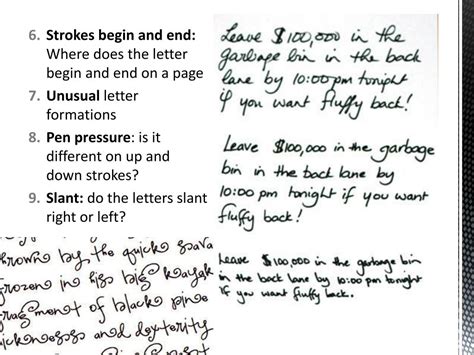 6. Strokes begin and end:
Where does the letter
begin and end on a page
7. Unusual letter
formations
8. Pen pressure: is it
different on up and
down strokes?
9. Slant: do the letters slant
right or left?
Leave $100,000 in the
garbage bin in the back
lane by 10:00pm tonight
if you want fluffy back!
Leave $100,000 in the garbage
bin in the back lane by
10:00 pm tonight if you want
fluffy back!
Leave $100,000 in the garbage bin
in the back lane by 10:00 pm tonight
If you want fluffy back.
by the quick
frozen in his big kayak
fragment of black pine
and dexterity